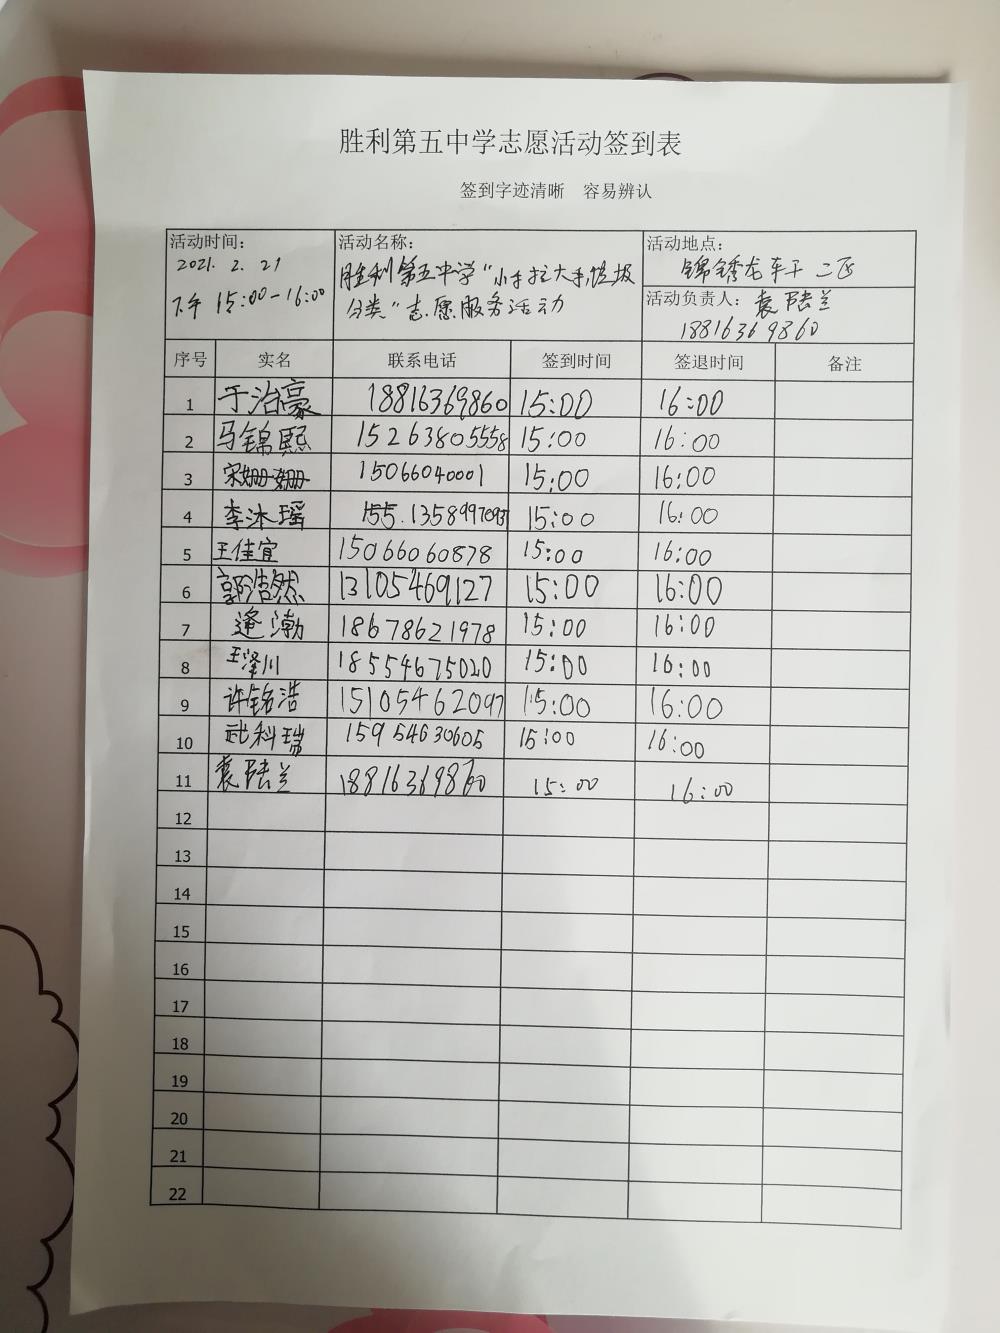 胜利第五中学志愿活动签到表
签到字迹清晰 容易辨认
活动时间： 活动名称： 活动地点：
2021.2.21
下午 15:00-16:00
胜利第五中学"小手拉大手,垃圾
分类"志愿服务活动
锦锈龙 二区
活动负责人：袁陆兰
18816369860
序号 实名 联系电话 签到时间 签退时间 备注
1 于治豪 18816369860 15:00 16:00
2 马锦熙 15263805558 15:00 16:00
3 宋姗姗 15066040001 15:00 16:00
4 李沐瑶 15:00 16:00
5 王佳宜 15066060878 15:00 16:00
6 郭浩然 13105469127 15:00 16:00
7 逄渤 18678621978 15:00 16:00
8 王泽川 18554675020 15:00 16:00
9 许铭浩 15105462097 15:00 16:00
10 武科瑞 15954630605 15:00 16:00
11 袁陆兰 18816369860 15:00 16:00
12
13
14
15
16
17
18
19
20
21
22